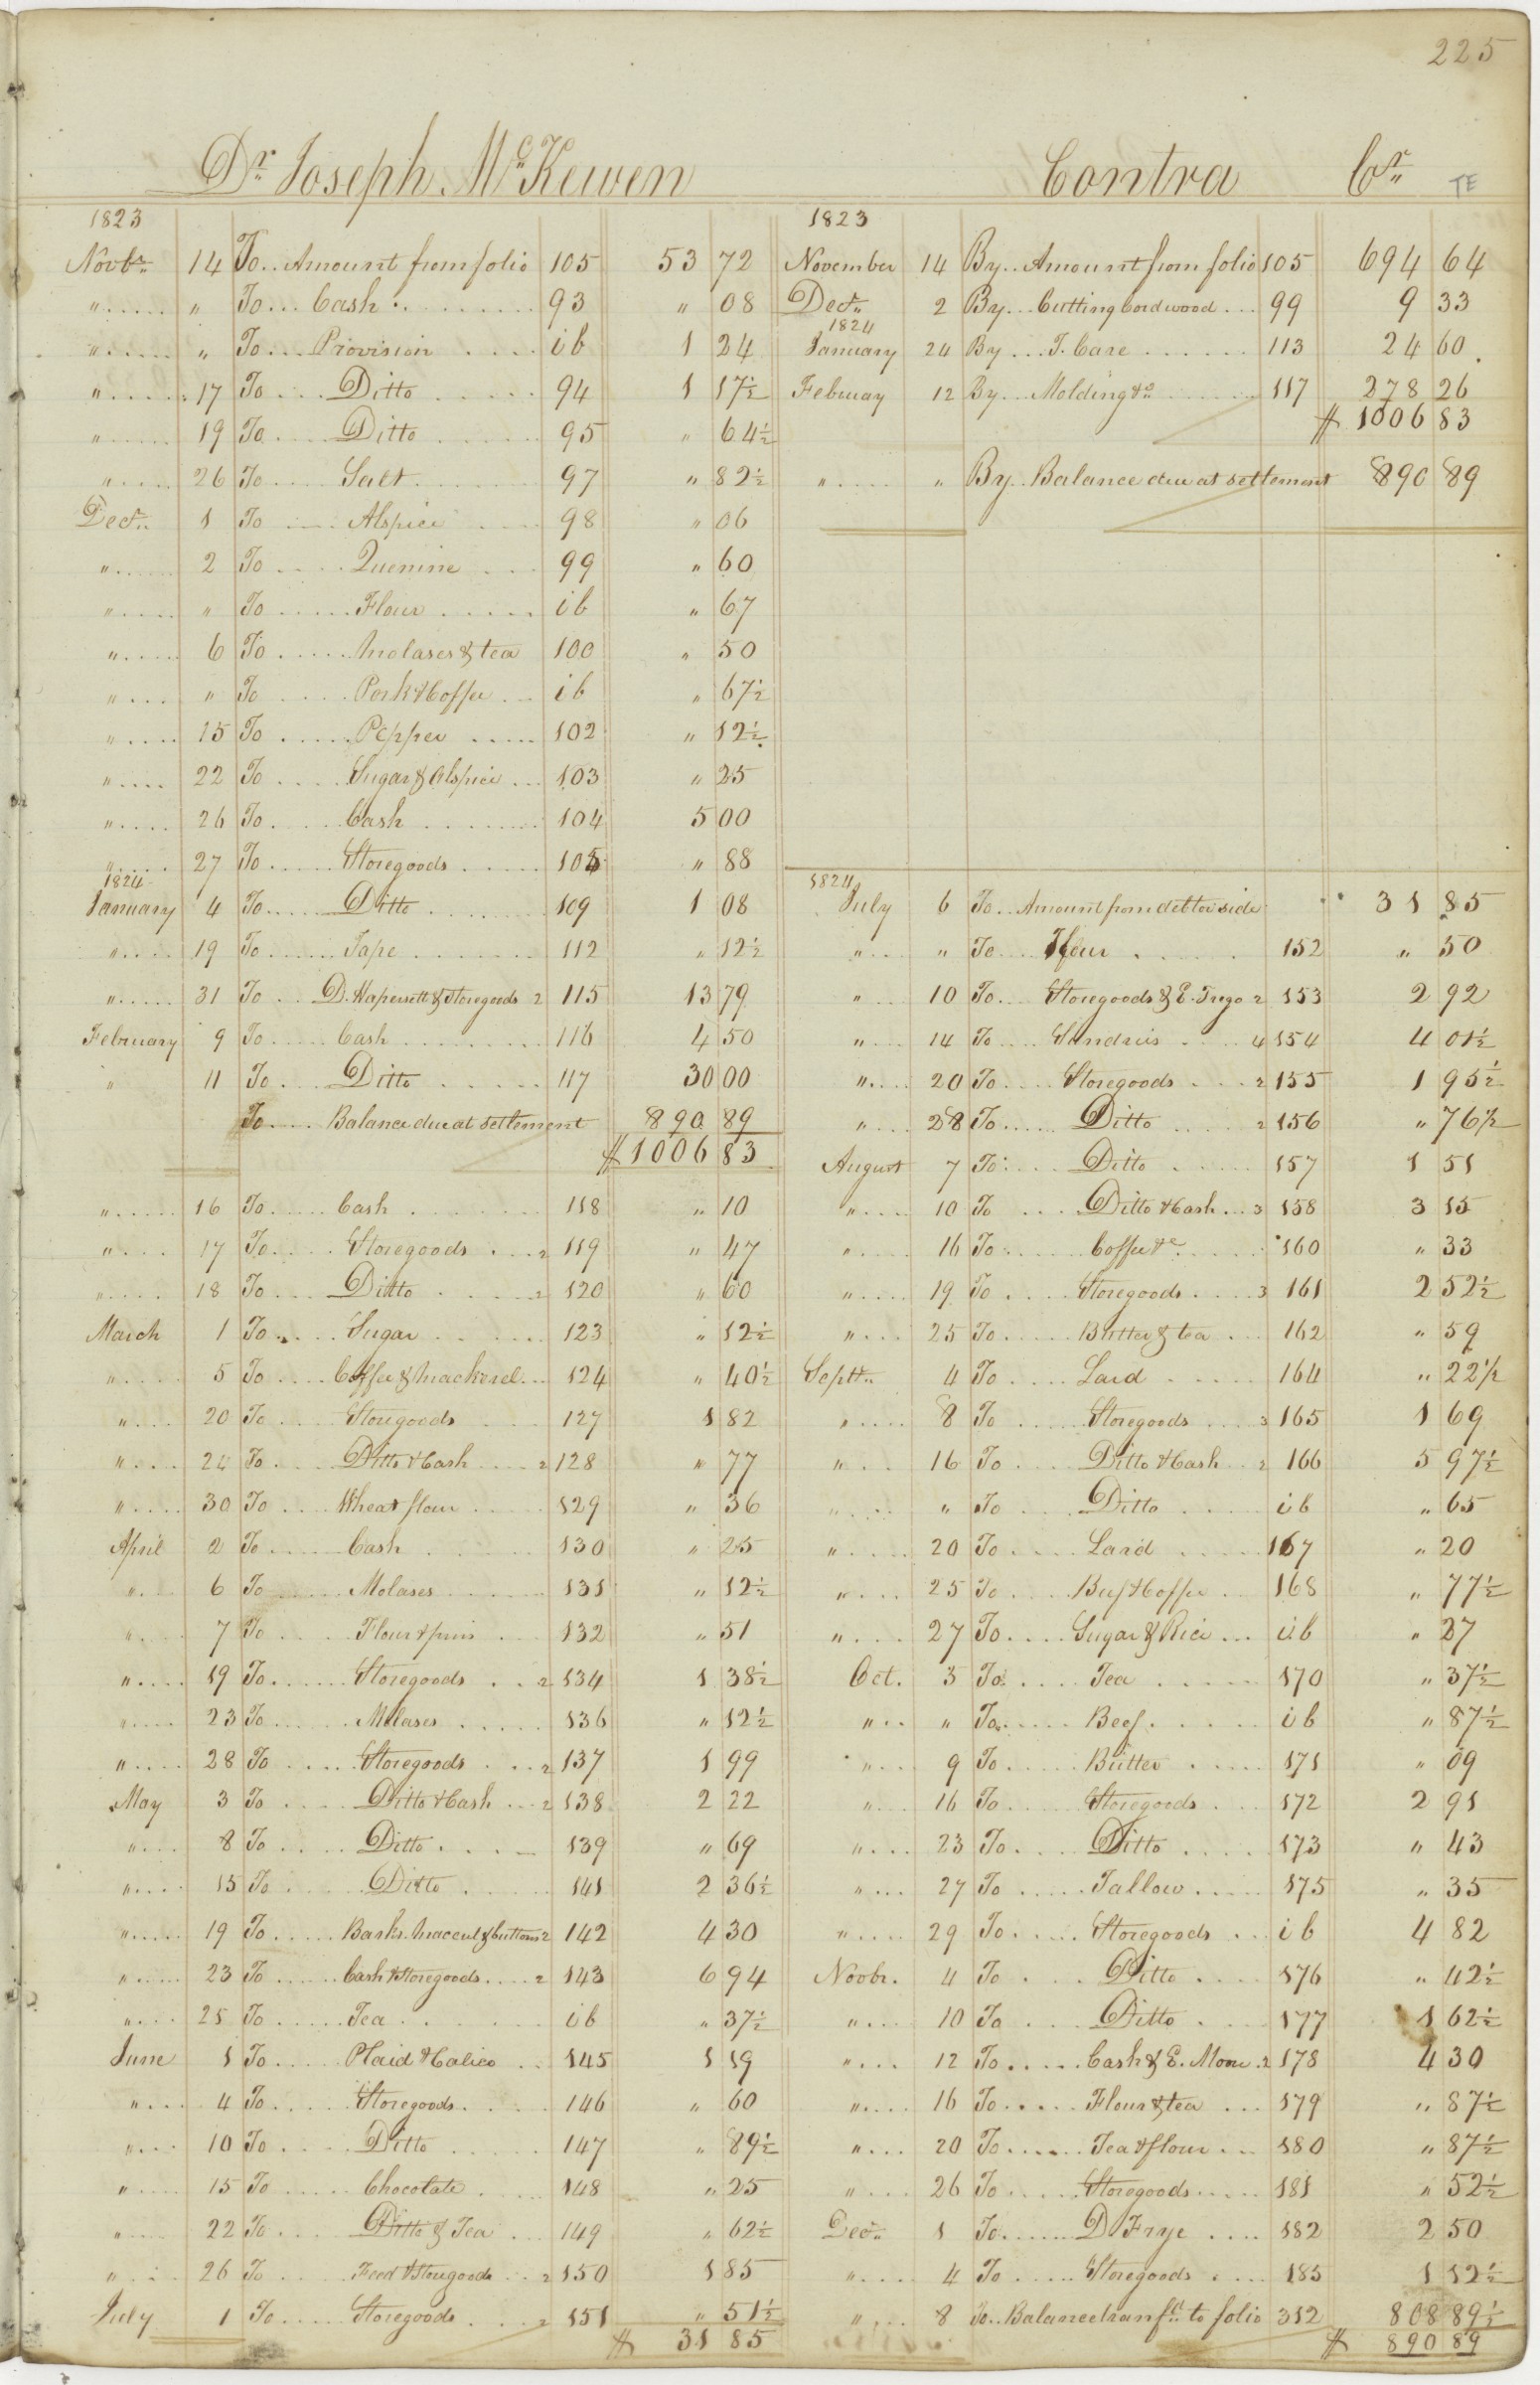 225
Dr. Joseph McKewen
Contra Cr.
TE
1823
Novbr. 14 To.. Amount from folio 105 53 72
" " To... Cash 93 " 08
" " To... Provision ib 1 24
" 17 To... Ditto 94 1 17½
" 19 To... Ditto 95 " 64½
" 26 To... Salt 97 " 82½
Decr. 1 To... Alspice 98 " 06
" 2 To... Quenine 99 " 60
" " To... Flour ib " 67
" 6 To... Molases & tea 100 " 50
" " To... Pork & Coffee ib " 67½
" 15 To... Pepper 102 " 12½
" 22 To... Sugar & Alspice 103 " 25
" 26 To... Cash 104 5 00
" 27 To... Storegoods 105 " 88
1824
January 4 To... Ditto 109 1 08
" 19 To... Tape 112 " 12½
" 31 To... D. Hapersett & Storegoods 2 115 13 79
February 9 To... Cash 116 4 50
" 11 To... Ditto 117 30 00
To... Balance due at settlement 890 89
$ 1006 83
" 16 To... Cash 118 " 10
" 17 To... Storegoods 2 119 " 47
" 18 To... Ditto 2 120 " 60
March 1 To... Sugar 123 " 12½
" 5 To... Coffee & Mackerel 124 " 40½
" 20 To... Storegoods 127 1 82
" 24 To... Ditto & Cash 2 128 " 77
" 30 To... Wheat flour 129 " 36
April 2 To... Cash 130 " 25
" 6 To... Molases 131 " 12½
" 7 To... Flour & pins 132 " 51
" 19 To... Storegoods 2 134 1 38½
" 23 To... Molases 136 " 12½
" 28 To... Storegoods 2 137 1 99
May 3 To... Ditto & Cash 2 138 2 22
" 8 To... Ditto 139 " 69
" 15 To... Ditto 141 2 36½
" 19 To... & buttons 2 142 4 30
" 23 To... Cash & Storegoods 2 143 6 94
" 25 To... Tea ib " 37½
June 1 To... Plaid & Calico 145 1 19
" 4 To... Storegoods 146 " 60
" 10 To... Ditto 147 " 89½
" 15 To... Chocolate 148 " 25
" 22 To... Ditto & Tea 149 " 62½
" 26 To... Feed & Storegoods 2 150 1 85
July 1 To... Storegoods 2 151 " 51½
$ 31 85
1823
November 14 By.. Amount from folio 105 694 64
Decr. 2 By... Cutting Cordwood 99 9 33
1824
January 24 By... T. Care 113 24 60
February 12 By... Molding &c 117 278 26
$ 1006 83
" " By.. Balance due at settlement 890 89
1824
July 6 To.. Amount from debtor side 31 85
" " To... Flour 152 " 50
" 10 To... Storegoods & E. Trego 2 153 2 92
" 14 To... Sundries 4 154 4 01½
" 20 To... Storegoods 2 155 1 95½
" 28 To... Ditto 2 156 " 76½
August 7 To... Ditto 157 1 51
" 10 To... Ditto & Cash 3 158 3 15
" 16 To... Coffee &c 160 " 33
" 19 To... Storegoods 3 161 2 52½
" 25 To... Butter & tea 162 " 59
Septr. 4 To... Lard 164 " 22½
" 8 To... Storegoods 3 165 1 69
" 16 To... Ditto & Cash 2 166 5 97½
" " To... Ditto ib " 65
" 20 To... Lard 167 " 20
" 25 To... Beef & Coffee 168 " 77½
" 27 To... Sugar & Rice ib " 27
Oct. 3 To... Tea 170 " 37½
" " To... Beef ib " 87½
" 9 To... Butter 171 " 09
" 16 To... Storegoods 172 2 91
" 23 To... Ditto 173 " 43
" 27 To... Tallow 175 " 35
" 29 To... Storegoods ib 4 82
Novbr. 4 To... Ditto 176 " 42½
" 10 To... Ditto 177 1 62½
" 12 To... Cash & E. Moore 2 178 4 30
" 16 To... Flour & tea 179 " 87½
" 20 To... Tea & flour 180 " 87½
" 26 To... Storegoods 181 " 52½
Decr. 1 To... D Frye 182 2 50
" 4 To... Storegoods 183 1 12½
" 8 To.. Balance transfd. to folio 312 808 89½
$ 890 89